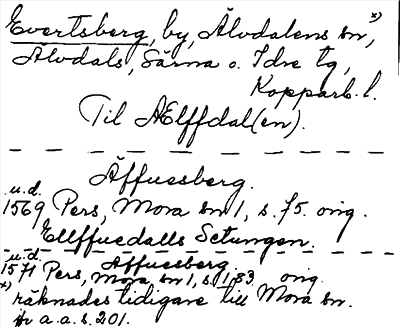 Evertsberg, by, Älvdalens sn, x)
Älvdals, Särna o. Idre tg,
Kopparb. l.
Til Ælffdal(en).
Äffuesberg.
u.d.
1569 Pers, Mora sn 1, s. 75. orig.
Ellffuedalls Setungen.
u.d. Äffuesberg.
1571 Pers, Mora sn 1, s. 183. orig.
x) räknades tidigare till Mora sn.
jfr a.a. s. 201.